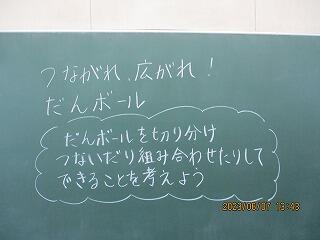 つながれ、広がれ！
だんボール
だんボールを切り分け
つないだり組み合わせたりして
できることを考えよう
2023/06/07 13:43